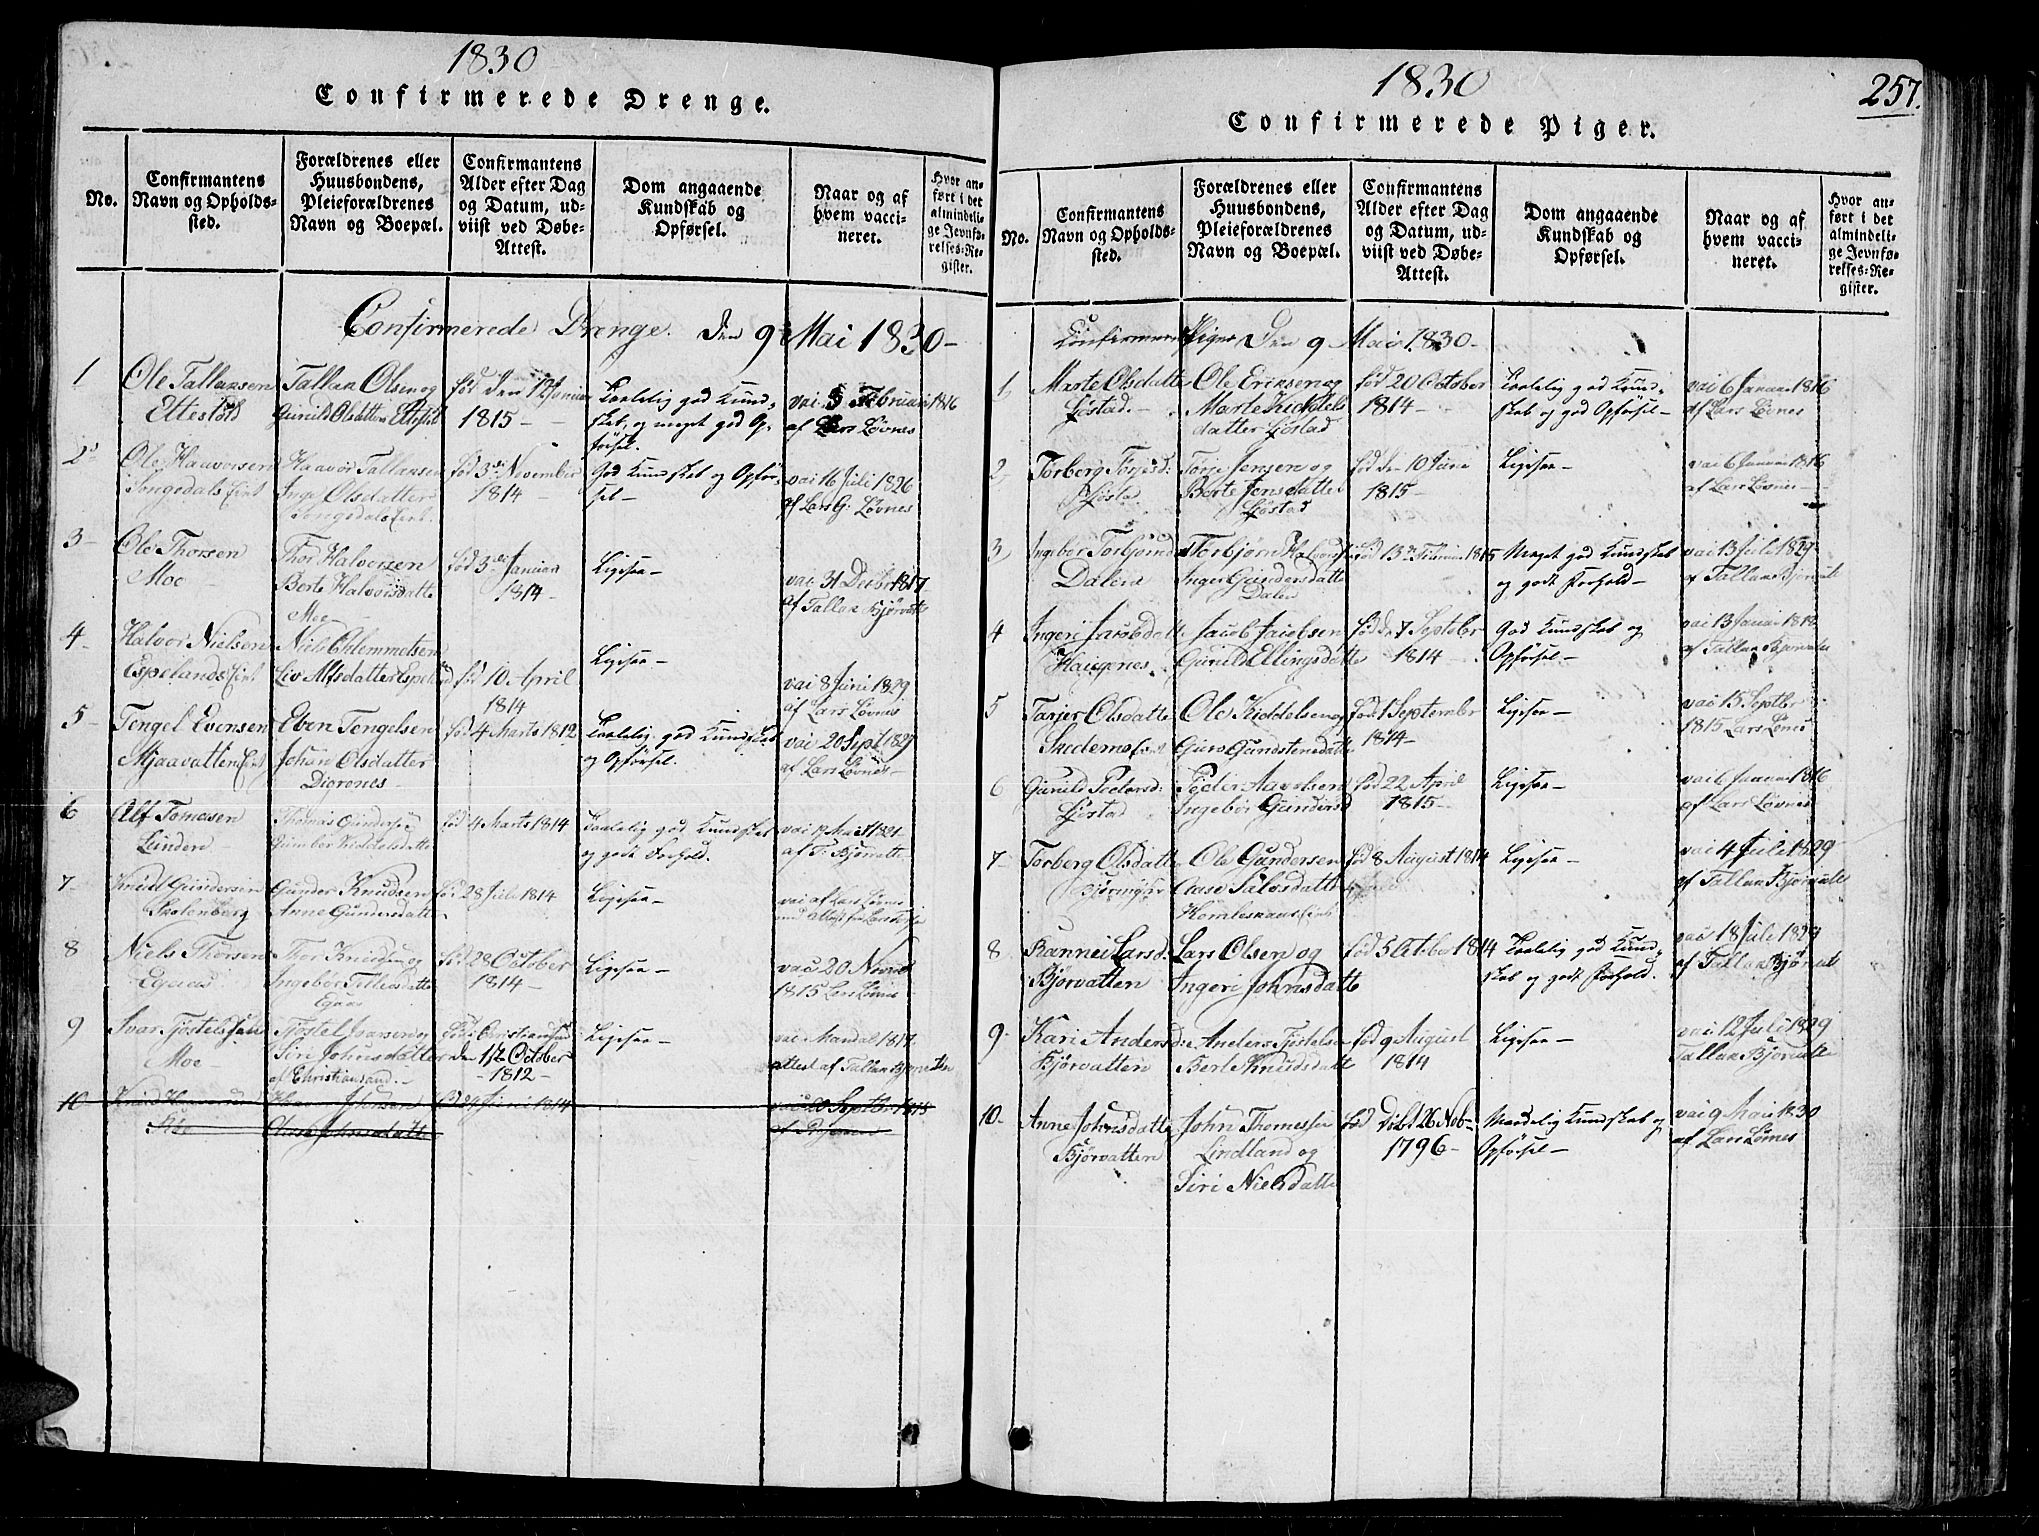 1830
Confirmerede Drenge.
No.
Confirmantens
Navn og Opholds-
sted.
Forældrenes eller
Huusbondens,
Pleieforældrenes
Navn og Boepæl.
Confirmantens
Alder efter Dag
og Datum, ud-
viist ved Døbe-
Attest.
Dom angaaende
Kundskab og
Opførsel.
Naar og af
hvem vacci-
neret.
Hvor an-
ført i det
almindeli-
ge Jevnfø-
relses-Re-
gister.
Confirmerede Drenge. Den 9 Mai 1830-
1
Ole Tallaksen
Tallak Olsen og
Olsdatter
fød den 12 Januar
1815-
Taalelig god Kund-
skab, og meget god Op-
førsel.
vac 5 Februar 1816
af Lars Løvnes
2
Ole Haavorsen
Songedals Eiet
Haavor Tallaksen
Inge Olsdatter
Songedals Eiet.
fød 3de November
1814-
God Kundskab og Opfør-
sel-
vac 16 Juli 1826
af Lars G. Løvnes
3-
Ole Thorsen
Moe-
Thor Halvorsen
Berte Halvorsdatte
Moe-
fød 3de Januar
1814-
Ligesaa-
vac 31 Decbr 1817
af Tallak Bjørvatte
4-
Halvor Nielsen
Espelands Eiet
Niels Chlemmetsen
Liv Alfsdatter
fød 10 April
1814
Ligesaa-
vac 8 Juni 1829
af Lars Løvnes
5-
Tengel Evensen
Mjaavatten Eiet
Even Tengelsen
Johan Olsdatter
fød 4 Marts 1812
Taalelig god Kundskab
og Opførsel.
vac 20 Sept 1827
af Lars Løvnes-
6
Alf Tomesen
Lindere
Thomas Gundersen
Kiddelsdatte
fød 4 Marts 1814
Taalelig god Kundskab
og godt Forhold.
af T. Bjørvatte
7-
Knud Gundersen
Skolenberg
Gunder Knudsen
Anne Gundersdatte
fød 28 Juli 1814
Ligesaa-
vac af Lars Løvnes
8
Niels Thorsen
Egaas
Thor Knudsen og
Ingebor
Egaas
fød 28 October
1814-
Ligesaa-
vac 20 Novbr
1815 Lars Løvnes
9
Ivar Tjøstelsen
Moe-
Tjøstel Ivarsen og
Siri Johnsdatter
af Christiansand.-
fød i Christiansand
den 12 October
-1812-
Ligesaa-
vac Mandal 1817
attest af Tallak Bjørvatten
10
fød 24 Juni 1814
vac 20 Septbr 1815
1830
257.
Confirmerede Piger.
No.
Confirmantens
Navn og Opholds-
sted.
Forældrenes eller
Huusbondens,
Pleieforældrenes
Navn og Boepæl.
Confirmantens
Alder efter Dag
og Datum, ud-
viist ved Døbe-
Attest.
Dom angaaende
Kundskab og
Opførsel.
Naar og af
hvem vacci-
neret.
Hvor an-
ført i det
almindeli-
ge Jevnfø-
relses-Re-
gister.
Piger Den 9 Mai 1830-
1,
Marte Olsdatte
Ljøstad.-
Ole Eriksen og
Marte Kiddels
datter Ljøstad
fød 20 October
1814-
Taalelig god Kund-
skab og god Opførsel-
vac 6 Januar 1816
af Lars Løvnes
2,
Torberg Torjesd:
Ljøstad
Torje Jensen og
Berte Jensdatte
Ljøstad
fød den 10 Juni
1815-
Ligesaa-
vac 6 Januar 1816
af Lars Løvnes-
3,
Ingebor Torbjørnsd
Dalen
Torbjørn Halvorsen
Inger Gundersdatte
Dalen
Meget god Kundskab
og godt Forhold-
vac 13 Juli 1829
af Tallak Bjørvatte
4
Ingeri Jacobdatt.
Jacob Jacobsen
Gunild Ellingsdatte
fød den 7 September
1814-
God Kundskab og
Opførsel-
af Tallak Bjørvatte
5
Tarjer Olsdatte
Ole Kiddelsen og
Guro Gundstensdatte
fød 1 September
1814-
Ligesaa-
vac 15 Septbr
1815 Lars Løvnes
6
Gunild Pedersd:
Ljøstad
Peder Aavelsen
Ingebor Gundersd
fød 22 April
1815-
Ligesaa-
vac 6 Januar 1816
af Lars Løvnes
7-
Torberg Olsdatte
Ole Gundersen
Aase Salvesdatte
fød 8 August 1814
Ligesaa-
vac 4 Juli 1829
af Tallak Bjørvatte
8
Rannei Larsd:
Bjørvatten
Lars Olsen og
Ingeri Johnsdatte
fød 5 October 1814
Taalelig god Kund-
skab og godt Forhold.
vac 18 Juli 1829
af Tallak Bjørvatte
9-
Kari Andersd:
Bjørvatten
Anders Tjøstelsen
Berte Knudsdatte
fød 9 August
1814
Ligesaa-
vac 12 Juli 1829
Tallak Bjørvatte
10-
Anne Johnsdatte
Bjørvatten
John Thomessen
Lindland og
Siri Nielsdatte
fød Døbt 26 Nob-
1796-
Maadelig Kundskab og
Opførsel-
vac 9 Mai 1830
af Lars Løvnes